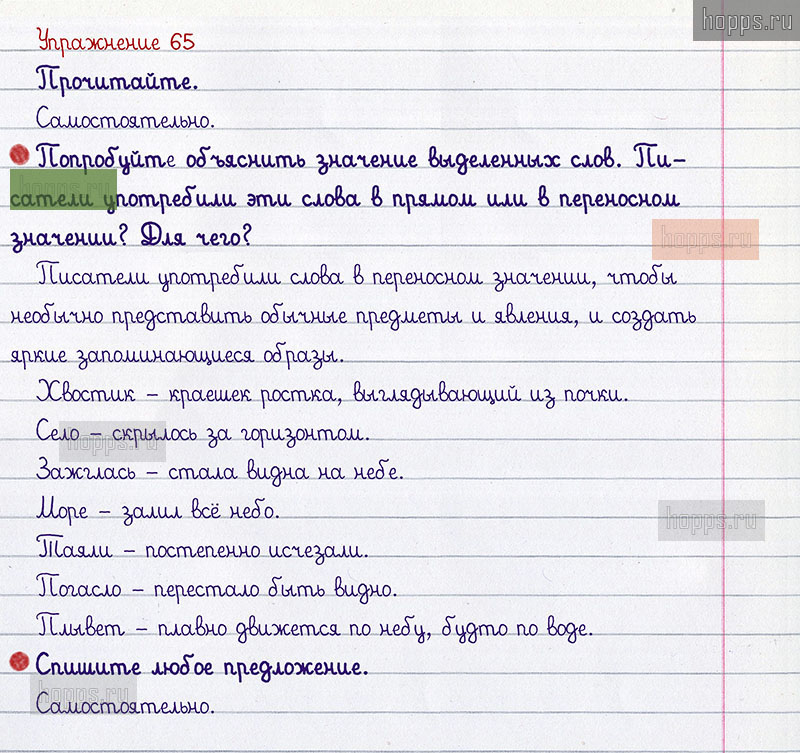 hopps.ru
Упражнение 65
Прочитайте.
Самостоятельно.
Попробуйте объяснить значение выделенных слов. Пи-
сатели употребили эти слова в прямом или в переносном
значении? Для чего?
hopps.ru
hopps.ru
Писатели употребили слова в переносном значении, чтобы
необычно представить обычные предметы и явления, и создать
яркие запоминающиеся образы.
Хвостик – краешек ростка, выглядывающий из почки.
Село – скрылось за горизонтом.
hopps.ru
Зажглась – стала видна на небе.
Море – залил всё небо.
hopps.ru
Таяли – постепенно исчезали.
Погасло – перестало быть видно.
Плывет – плавно движется по небу, будто по воде.
Спишите любое предложение.
hopps.ru
Самостоятельно.